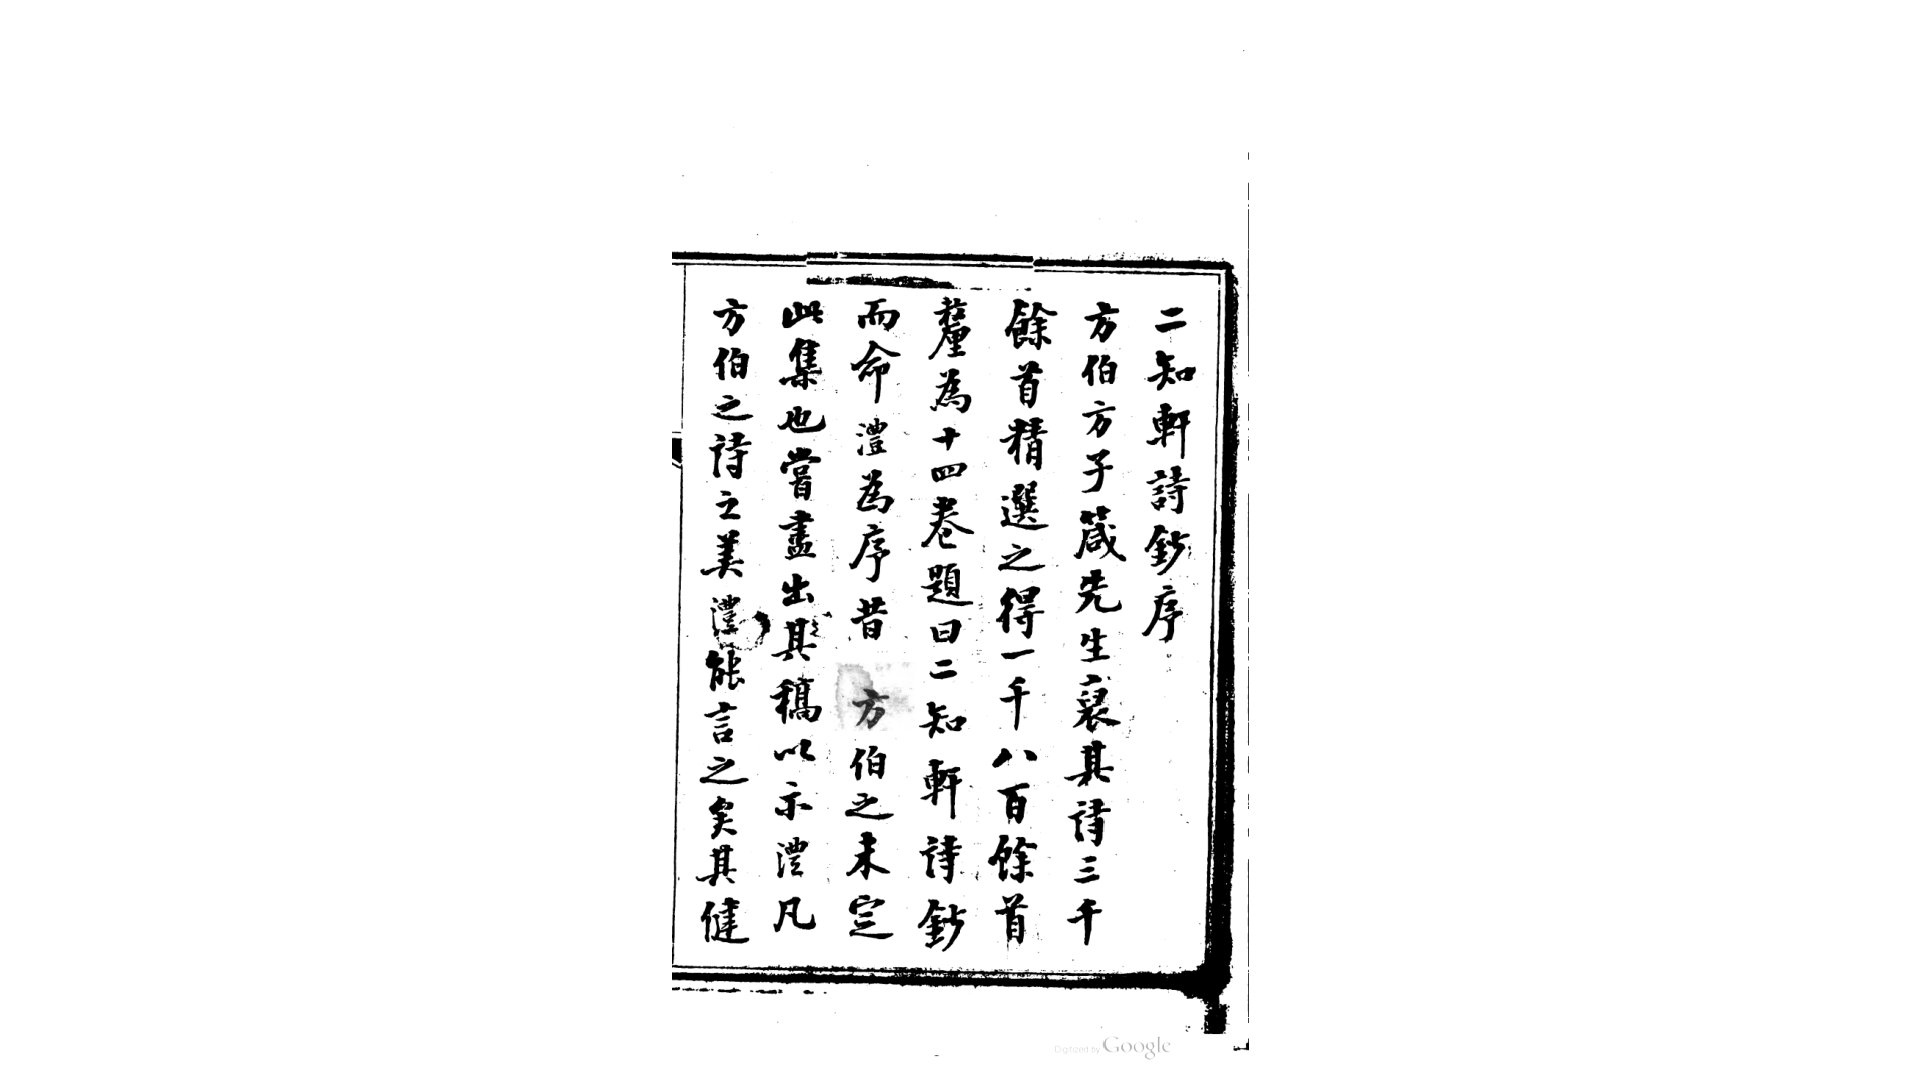 二知軒詩鈔序
方伯方子箴先生裒其詩三千
餘首精選之得一千八百餘首
釐為十四卷題曰二知軒詩鈔
而命澧為序昔方伯之未定
此集也嘗盡出其稿以示澧凡
方伯之詩之美澧能言之矣其健
Digitized by Google